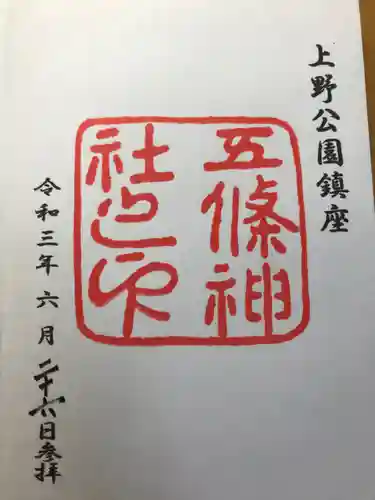 上野公園鎮座
五條神
社之印
令和三年六月二十六日参拝